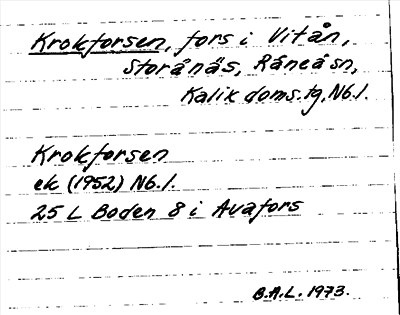 Krokforsen, fors i Vitån,
Storånäs, Råneå sn,
Kalix doms.tg, Nb.l.
Krokforsen
ek (1952) Nb.l.
25 L Boden 8 i Avafors
B.A.L. 1973.